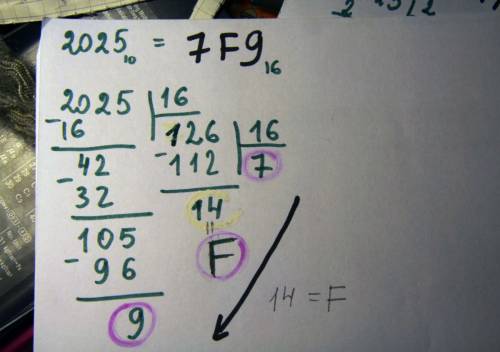 2025₁₀ = 7F9₁₆
2025 | 16
-16
126 | 16
-42
-112
7
32
14
105
=
F
-96
9
14 = F